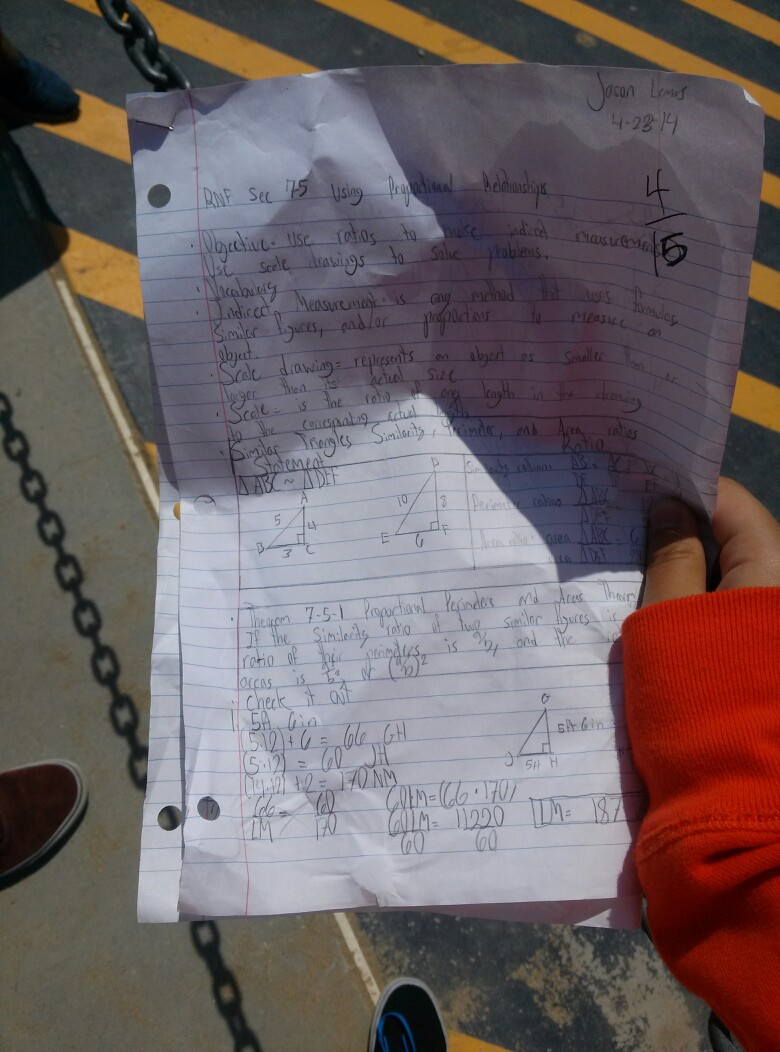 Jason Lemus
4-23-14
RNF Sec 7-5 Using Proportional Relationships.
4
15
• Objective- Use ratios to make indirect measurements
Use scale drawings to solve problems.
• Vocabulary
• Indirect Measurement- is any method that uses formulas,
Similar figures, and/or proportions to measure an
object.
• Scale drawing= represents an object as smaller than or
larger than its actual size
• Scale= is the ratio of any length in the drawing
to the corresponding actual length
• Similar Triangles Similarity, Perimeter, and Area ratios
Statement Ratio
△ABC ~ △DEF
Similarity ratio= AB = AC =
A
5 4
B 3 C
D
10 8
E 6 F
Perimeter ratio= △ABC
△DEF
Area ratio= area △ABC =
area △DEF
• Theorem 7-5-1 Proportional Perimeters and Areas Theorem
If the Similarity ratio of two similar figures is
ratio of their perimeters is a/b, and the
areas is a²/b² or (a/b)²
• Check it out
1. 5ft 6in
(5·12)+6 = 66 GH
(5·12) = 60 JH
(14·12)+2 = 170 NM
G
5ft 6in
J 5ft H
66 = 60
LM 170
60LM=(66·170)
60LM= 11220
60 60
LM= 187